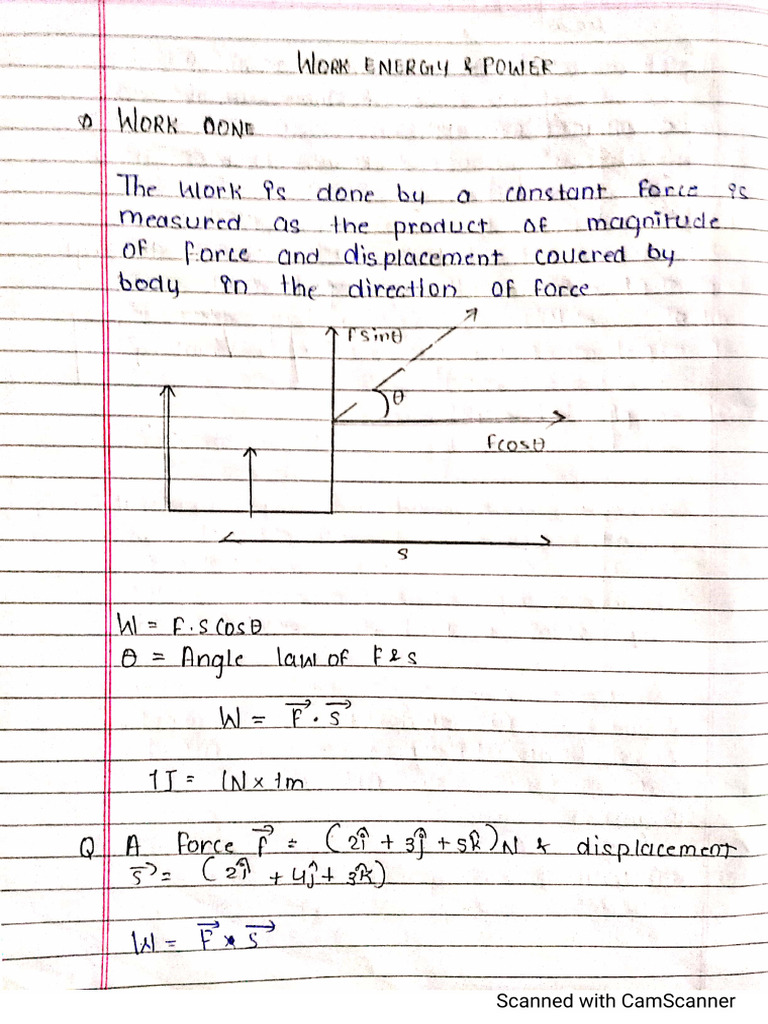 WORK ENERGY & POWER
WORK DONE
The work is done by a constant force is
measured as the product of magnitude
of force and displacement covered by
body in the direction of force
Fsinθ
θ
Fcosθ
s
W = F.s cosθ
θ = Angle law of F & s
W = F⃗ . s⃗
1J = 1N × 1m
Q A force F⃗ = (2î + 3ĵ + 5k̂)N & displacement
s⃗ = (2î + 4ĵ + 3k̂)
W = F⃗ × s⃗
Scanned with CamScanner